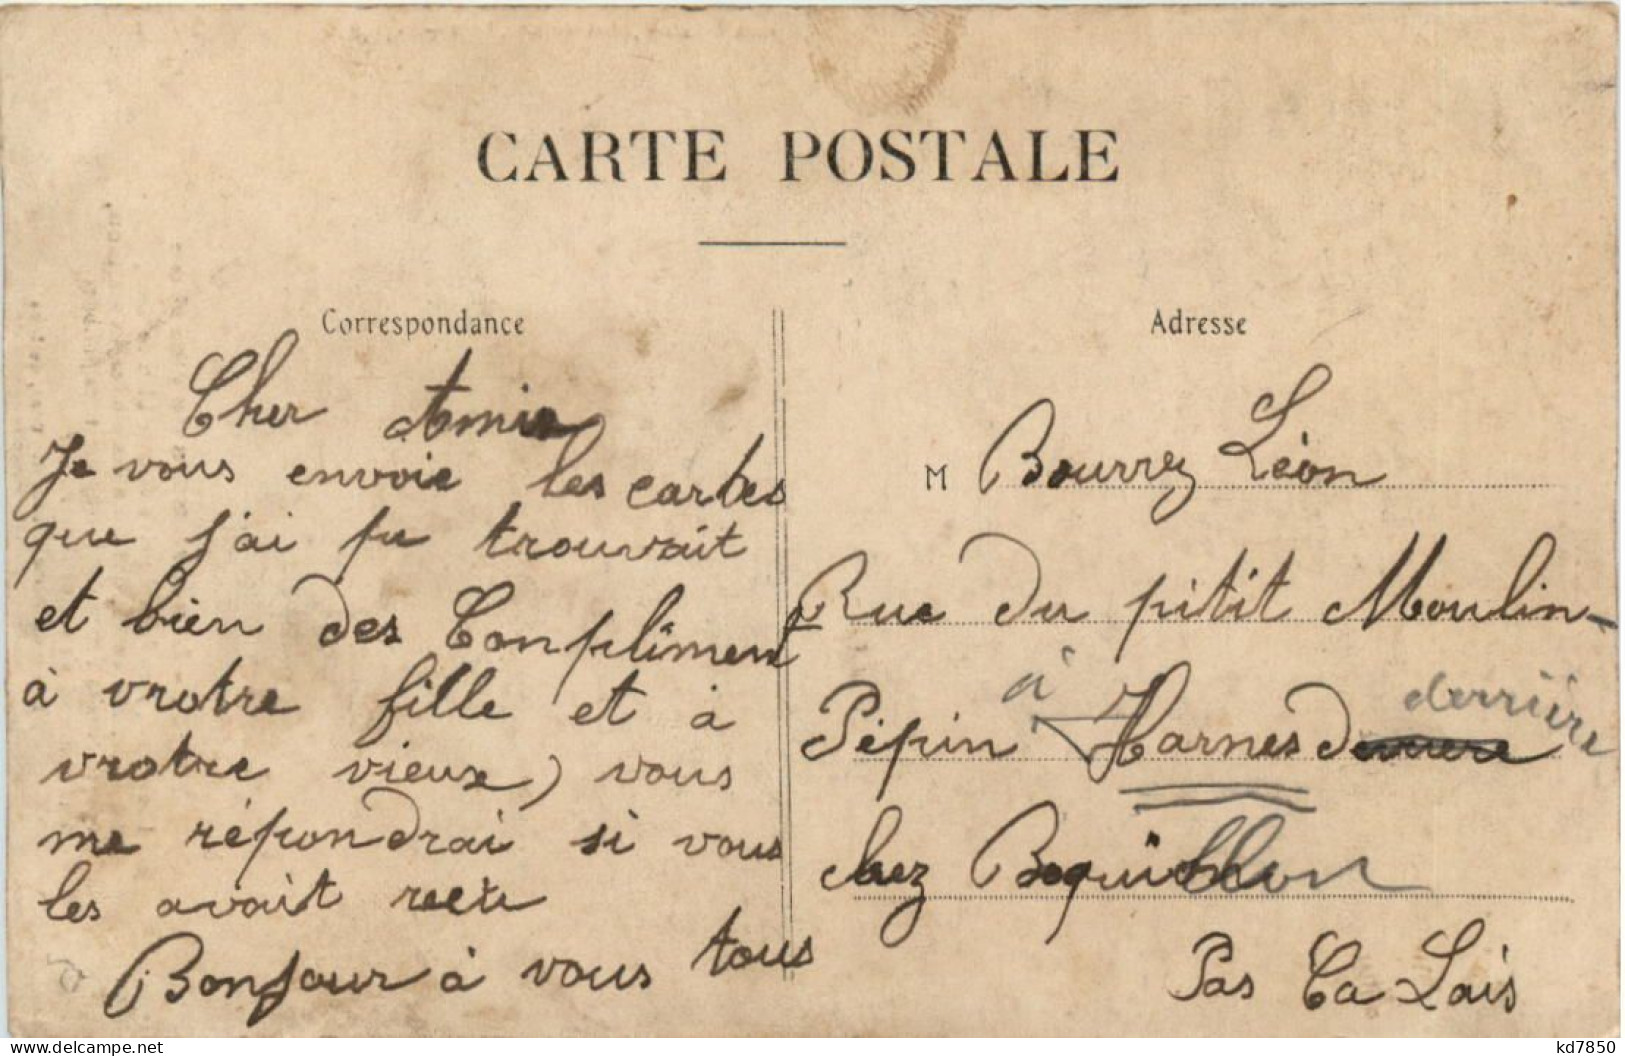 CARTE POSTALE
Correspondance
Cher Amis
Je vous envoie les cartes
que j'ai pu trouvait
et bien des Complîment
à vrotre fille et à
vrotre vieux) vous
me répondrai si vous
les avait recu
Bonjour à vous tous
Adresse
M Bourrez Léon
Rue du pitit Moulin-
Pépin à Harnes derrière
chez Boquillon
Pas Ca Lais
kd7850